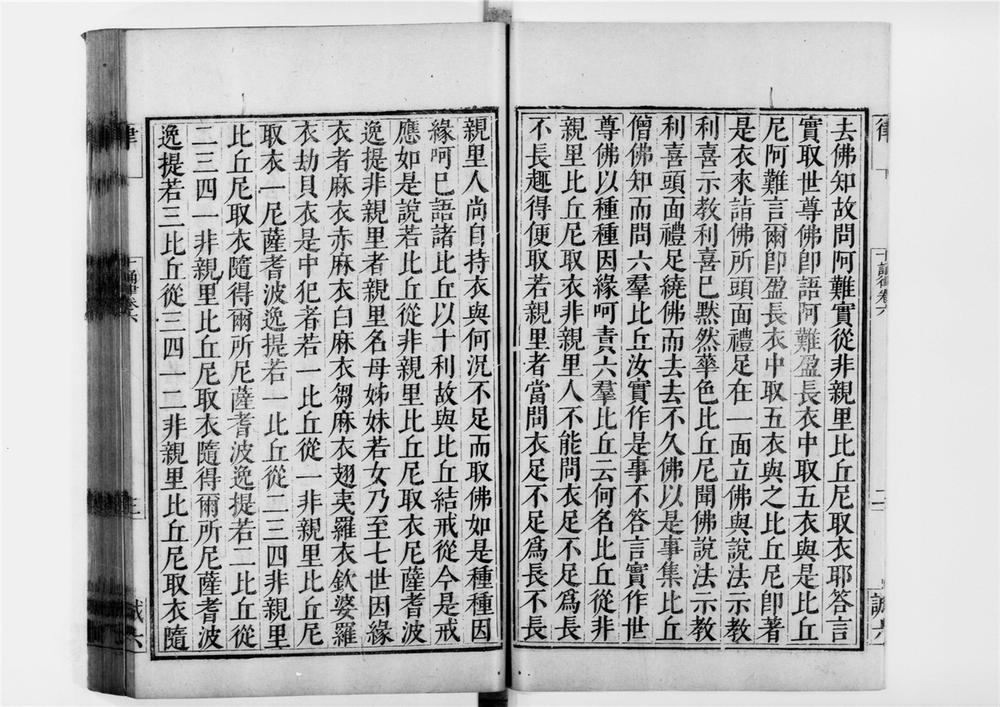 去佛知故問阿難實從非親里比丘尼取衣耶答言
實取世尊佛卽語阿難盈長衣中取五衣與是比丘
尼阿難言爾卽盈長衣中取五衣與之比丘尼卽著
是衣來詣佛所頭面禮足在一面立佛與說法示教
利喜示教利喜已黙然華色比丘尼聞佛說法示教
利喜頭面禮足繞佛而去去不久佛以是事集比丘
僧佛知而問六羣比丘汝實作是事不答言實作世
尊佛以種種因緣呵責六羣比丘云何名比丘從非
親里比丘尼取衣非親里人不能問衣足不足爲長
不長趣得便取若親里者當問衣足不足爲長不長
親里人尚自持衣與何況不足而取佛如是種種因
緣呵已語諸比丘以十利故與比丘結戒從今是戒
應如是說若比丘從非親里比丘尼取衣尼薩耆波
逸提非親里者親里名母姊妹若女乃至七世因緣
衣者麻衣赤麻衣白麻衣芻麻衣翅夷羅衣欽婆羅
衣劫貝衣是中犯者若一比丘從一非親里比丘尼
取衣一尼薩耆波逸提若一比丘從二三四非親里
比丘尼取衣隨得爾所尼薩耆波逸提若二比丘從
二三四一非親里比丘尼取衣隨得爾所尼薩耆波
逸提若三比丘從三四一二非親里比丘尼取衣隨
律
十誦律卷六
二
誠六
律
十誦律卷六
三
誠六